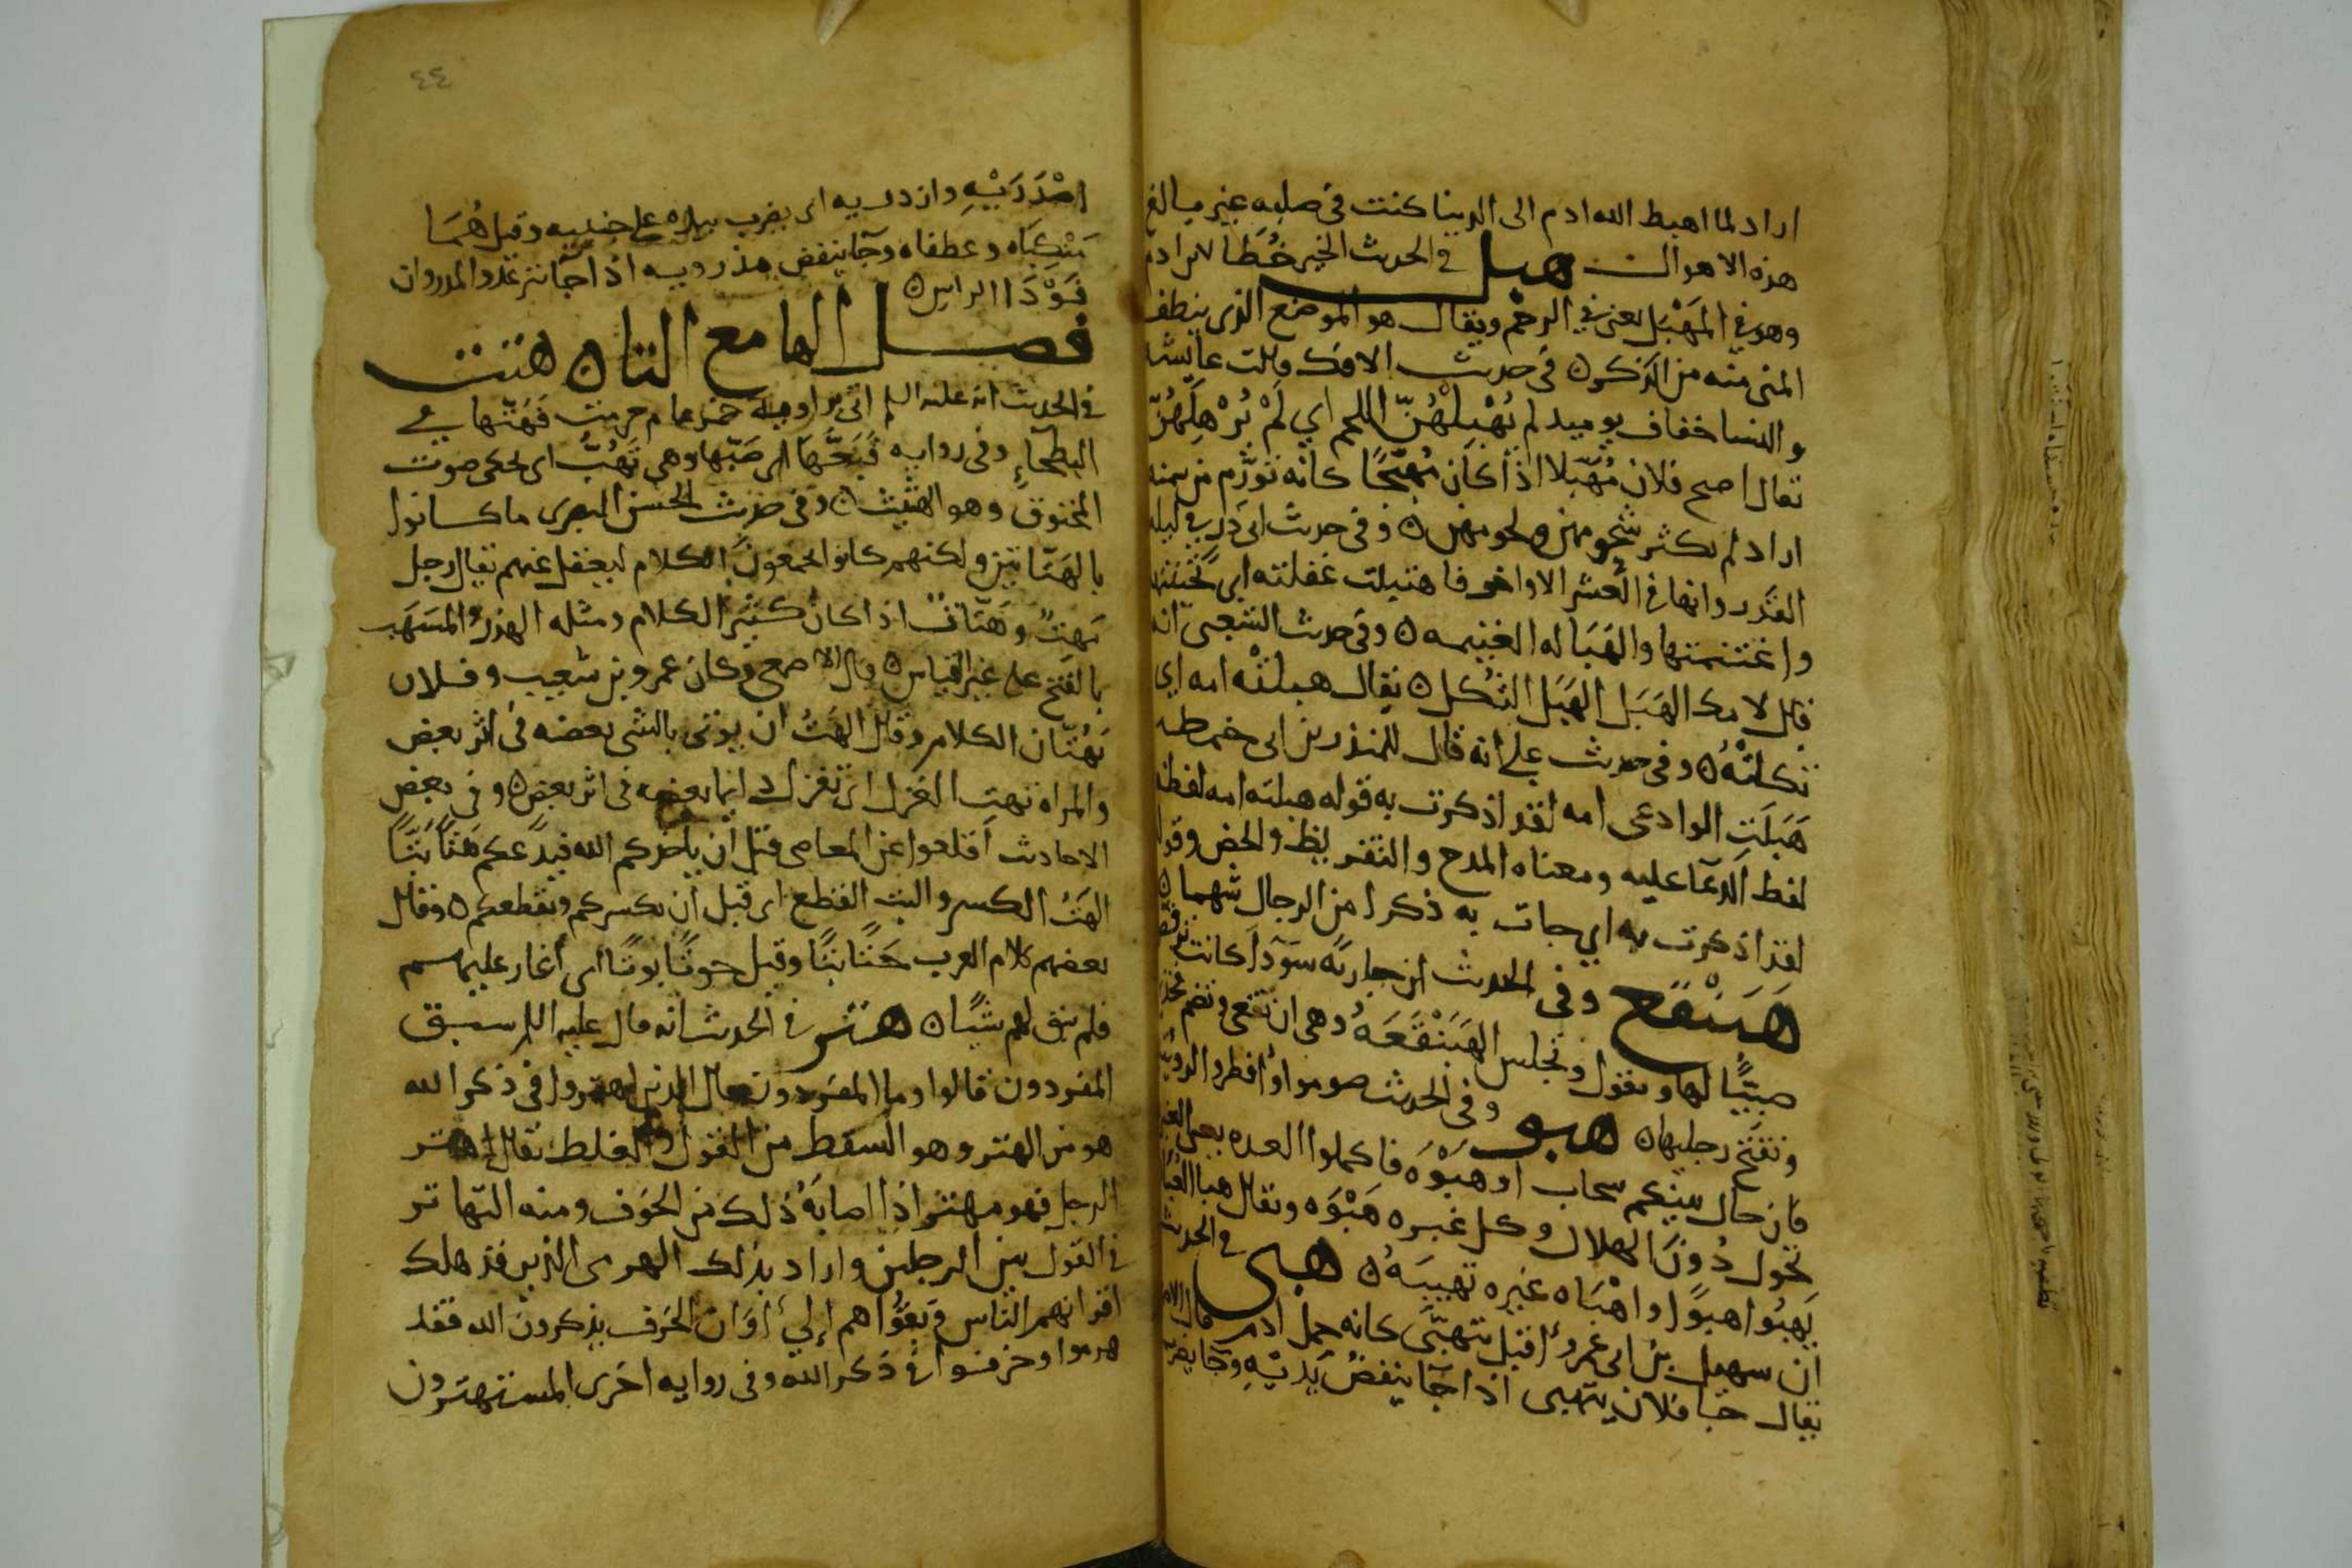 اراد لما اهبط الله ادم الى الدنيا كنت في صلبه غير بالغ
هذه الاهوال هبل في الحديث الخير خطا لابن ادم
وهو في المَهْبَل يعنى في الرحم ويقال هو الموضع الذى ينطف
المنى منه من الذكر ه فى حديث الافك قالت عايشه
والنسا خفاف يوميد لم يُهْبِلْهُنّ اللحم اي لَمْ يُرْهِلْهُنّ
يقال اصبح فلان مُهَبّلا اذا كان مُهَبّجًا كانه تورّم من سمنه
اراد لم يكثر شحومهن ولحومهن ه وفى حديث ابى ذر في ليله
القدر وانها في العشر الاواخر فاهتبلت غفلته اي تحينتها
واغتنمتها والهَبَاله الغنيمه ه وفى حديث الشعبى انه
قال لامك الهَبَل الهَبَل الثكل ه يقال هبلته امه اي
ثكلته ه وفى حديث على انه قال للمنذر بن ابى خمرطه
هَبَلَتِ الوادعى امه لقد اذكرت به قوله هبلته امه لفظه
لفظ الدعآ عليه ومعناه المدح والتقريظ والحض وقوله
لقد اذكرت به اي جات به ذكرا من الرجال شهما ه
هَبَنْقَع وفى الحديث ان جاريه سودآ كانت ترقص
صبيًّا لها وتقول وتجلس الهَبَنْقَعَه وهى ان تقعى وتضم فخذ
وتفتح رجليها ه هبو وفى الحديث صوموا وافطروا لرويته
فان حال بينكم سحاب او هَبْوَه فاكملوا العده يعنى الغبره
تحول دون الهلال وكل غبره هَبْوَه ويقال هبا الغبار
يَهْبُوا هبوًا واهْبَاه غيره تهبيه ه هبى في الحديث
ان سهيل بن ابى عمرو اقبل يتهبّى كانه جمل ادم قال
يقال جا فلان يتهبى اذا جآ ينفض يديه وجآ يضرب
اصْدَرَيْهِ وازدريه اى يضرب بيديه على جنبيه وقيل هُمَا
مَنْكِبَاه وعطفاه وجآ ينفض مذرويه اذا جآ يتهدد والمذروان
فَوْدَا الراس ه
فصل الها مع التا ه هتت
في الحديث انه عليه السلم اتى بزاويه خمر عام حرمت فَهَتّها في
البطحاء وفى روايه فَبَعّهَا اى صَبّها وهى تَهُتّ اى تحكى صوت
المخنوق وهو الهتيت ه وفى حديث الحسن البصرى ما كانوا
بالهَتّاتين ولكنهم كانوا يجمعون الكلام ليعقل عنهم يقال رجل
مِهتّ وهَتّات اذا كان كثير الكلام ومثله الهذر والمسهَب
بالفتح على غير القياس ه قال الاصمعى وكان عمرو بن شعيب وفلان
يَهُتّان الكلام وقال الهَتُّ ان يوتى بالشى بعضه فى اثر بعض
والمراه تهت الغزل اى تغزل دايما بعضه فى اثر بعض ه وفى بعض
الاحاديث اقلعوا عن المعاصى قبل ان ياخذكم الله فيدعكم هَتًّا بَتًّا
الهَتُّ الكسر والبت القطع اى قبل ان يكسركم ويقطعكم ه وقال
بعضهم كلام العرب حَتًّا بتًّا وقيل حوتًا بوتًا اى اغار عليهم
فلم يبق لهم شيًا ه هتر في الحديث انه قال عليه السلم سبق
المفردون قالوا وما المفردون قال الذين اهتروا فى ذكر الله
هو من الهتر وهو السقط من القول والغلط يقال اهتر
الرجل فهو مهتر اذا اصابه ذلك من الخرف ومنه التهاتر
في القول بين الرجلين واراد بذلك الهرمى الذين قد هلك
اقرانهم الناس وبقوا هم الى اوان الخرف يذكرون الله فقد
هرموا وخرفوا فى ذكر الله وفى روايه اخرى المستهترون